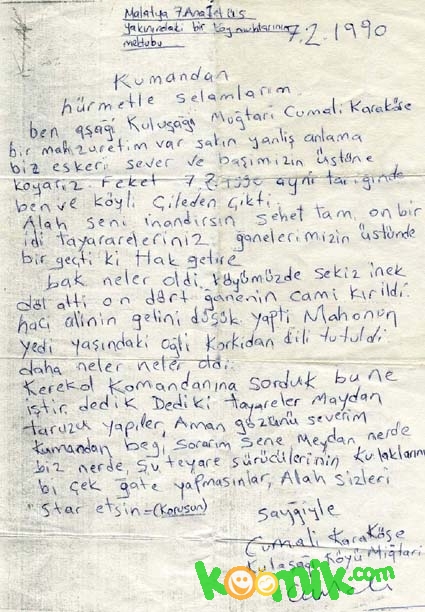 Malatya 7. Ana Jet Üs
yakınındaki bir köy muhtarının
mektubu
7.2.1990
Kumandan
hürmetle selamlarım.
ben aşaği Kuluşağı Muğtari Cumali Karaköse
bir mahzuretim var sakın yanliş anlama
biz eskeri sever ve başimizin üstüne
koyariz. Feket 7.2.1990 ayni tariğinde
ben ve köyli Çileden Çikti.
Alah seni inandirsin sehet tam on bir
idi tayarareleriniz ganelerimizin üstünde
bir geçti ki Hak getire
bak neler oldi köyümüzde sekiz inek
döl atti on dört ğanenin cami kirildi
haci alinin gelini düşük yapti Mahonun
yedi yaşındaki oğli korkidan dili tutuldi
daha neler neler oldi.
Kerekol Komandanına sorduk bu ne
iştir dedik Dediki tayareler Maydan
turuzu yapiler, Aman gözünü severim
kumandan beği, sorarim sene Meydan nerde
biz nerde, şu teyare sürücülerinin kulaklarını
bi çek gate yapmasınlar, Alah sizleri
star etsin = (Korusun)
sayğiyle
Cumali Karaköse
Kulaşaği Köyü Miğtari
koomik.com